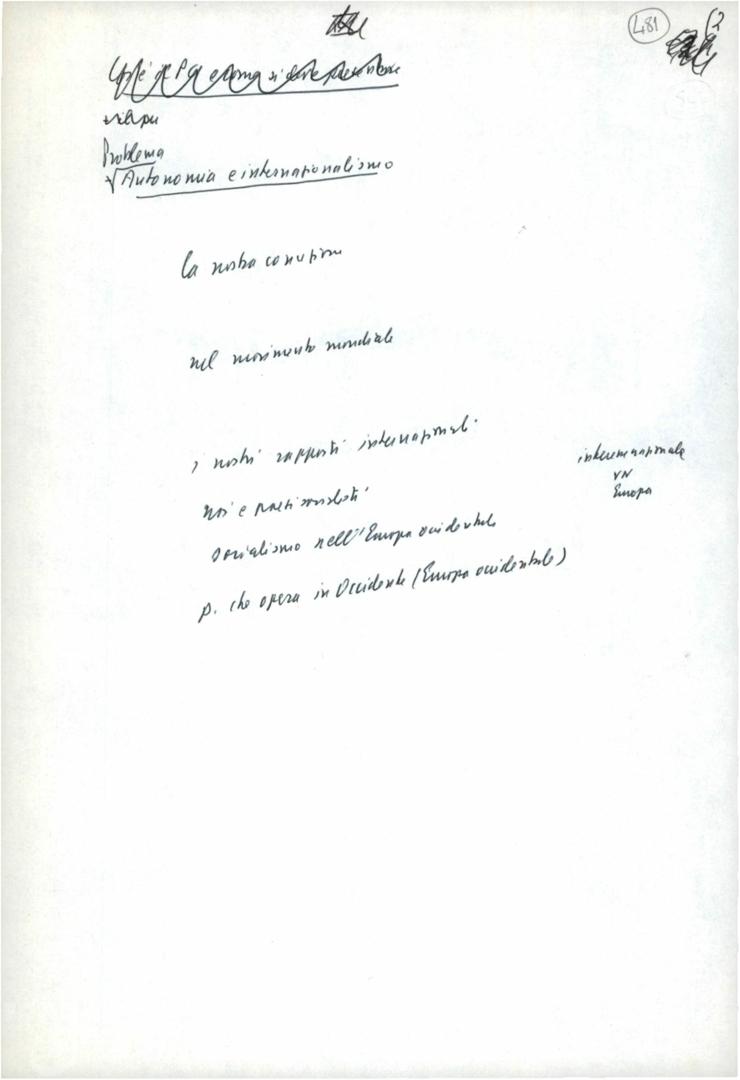 481
Problema
√ Autonomia e internazionalismo
la nostra concezione
nel movimento mondiale
i nostri rapporti internazionali
noi e paesi socialisti
socialismo nell'Europa occidentale
p. che opera in Occidente (Europa occidentale)
VN
Europa